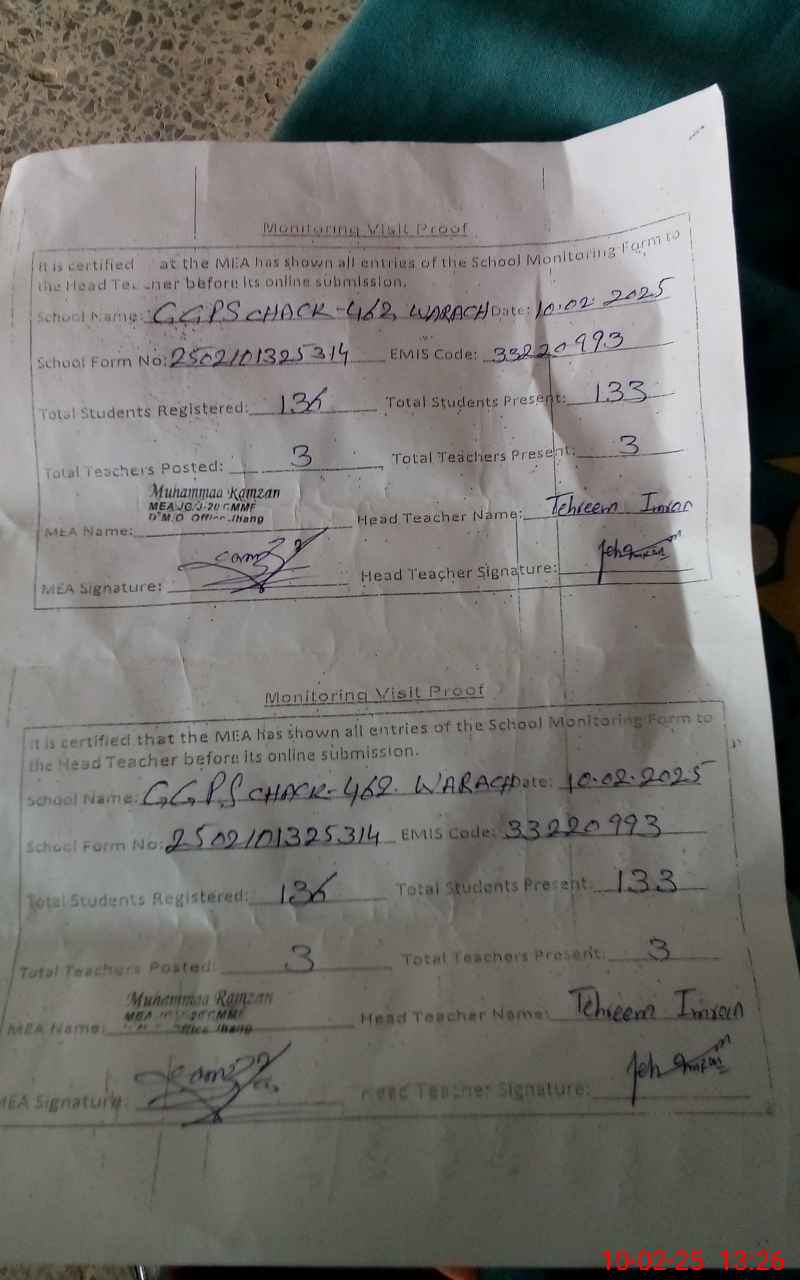 Monitoring Visit Proof
It is certified at the MEA has shown all entries of the School Monitoring Form to
the Head Teacher before its online submission.
School Name: GGPS CHACK-462 WARACH Date: 10.02.2025
School Form No: 2502101325314 EMIS Code: 33220993
Total Students Registered: 136 Total Students Present: 133
Total Teachers Posted: 3 Total Teachers Present: 3
Muhammad Ramzan
D.M.O Office Jhang
MEA Name: Head Teacher Name: Tehreem Imran
MEA Signature: Head Teacher Signature:
Monitoring Visit Proof
It is certified that the MEA has shown all entries of the School Monitoring Form to
the Head Teacher before its online submission.
School Name: GGPS CHACK-462. WARACH Date: 10.02.2025
School Form No: 2502101325314 EMIS Code: 33220993
Total Students Registered: 136 Total Students Present: 133
Total Teachers Posted: 3 Total Teachers Present: 3
Muhammad Ramzan
Office Jhang
MEA Name: Head Teacher Name: Tehreem Imran
MEA Signature: Head Teacher Signature:
10-02-25 13:26